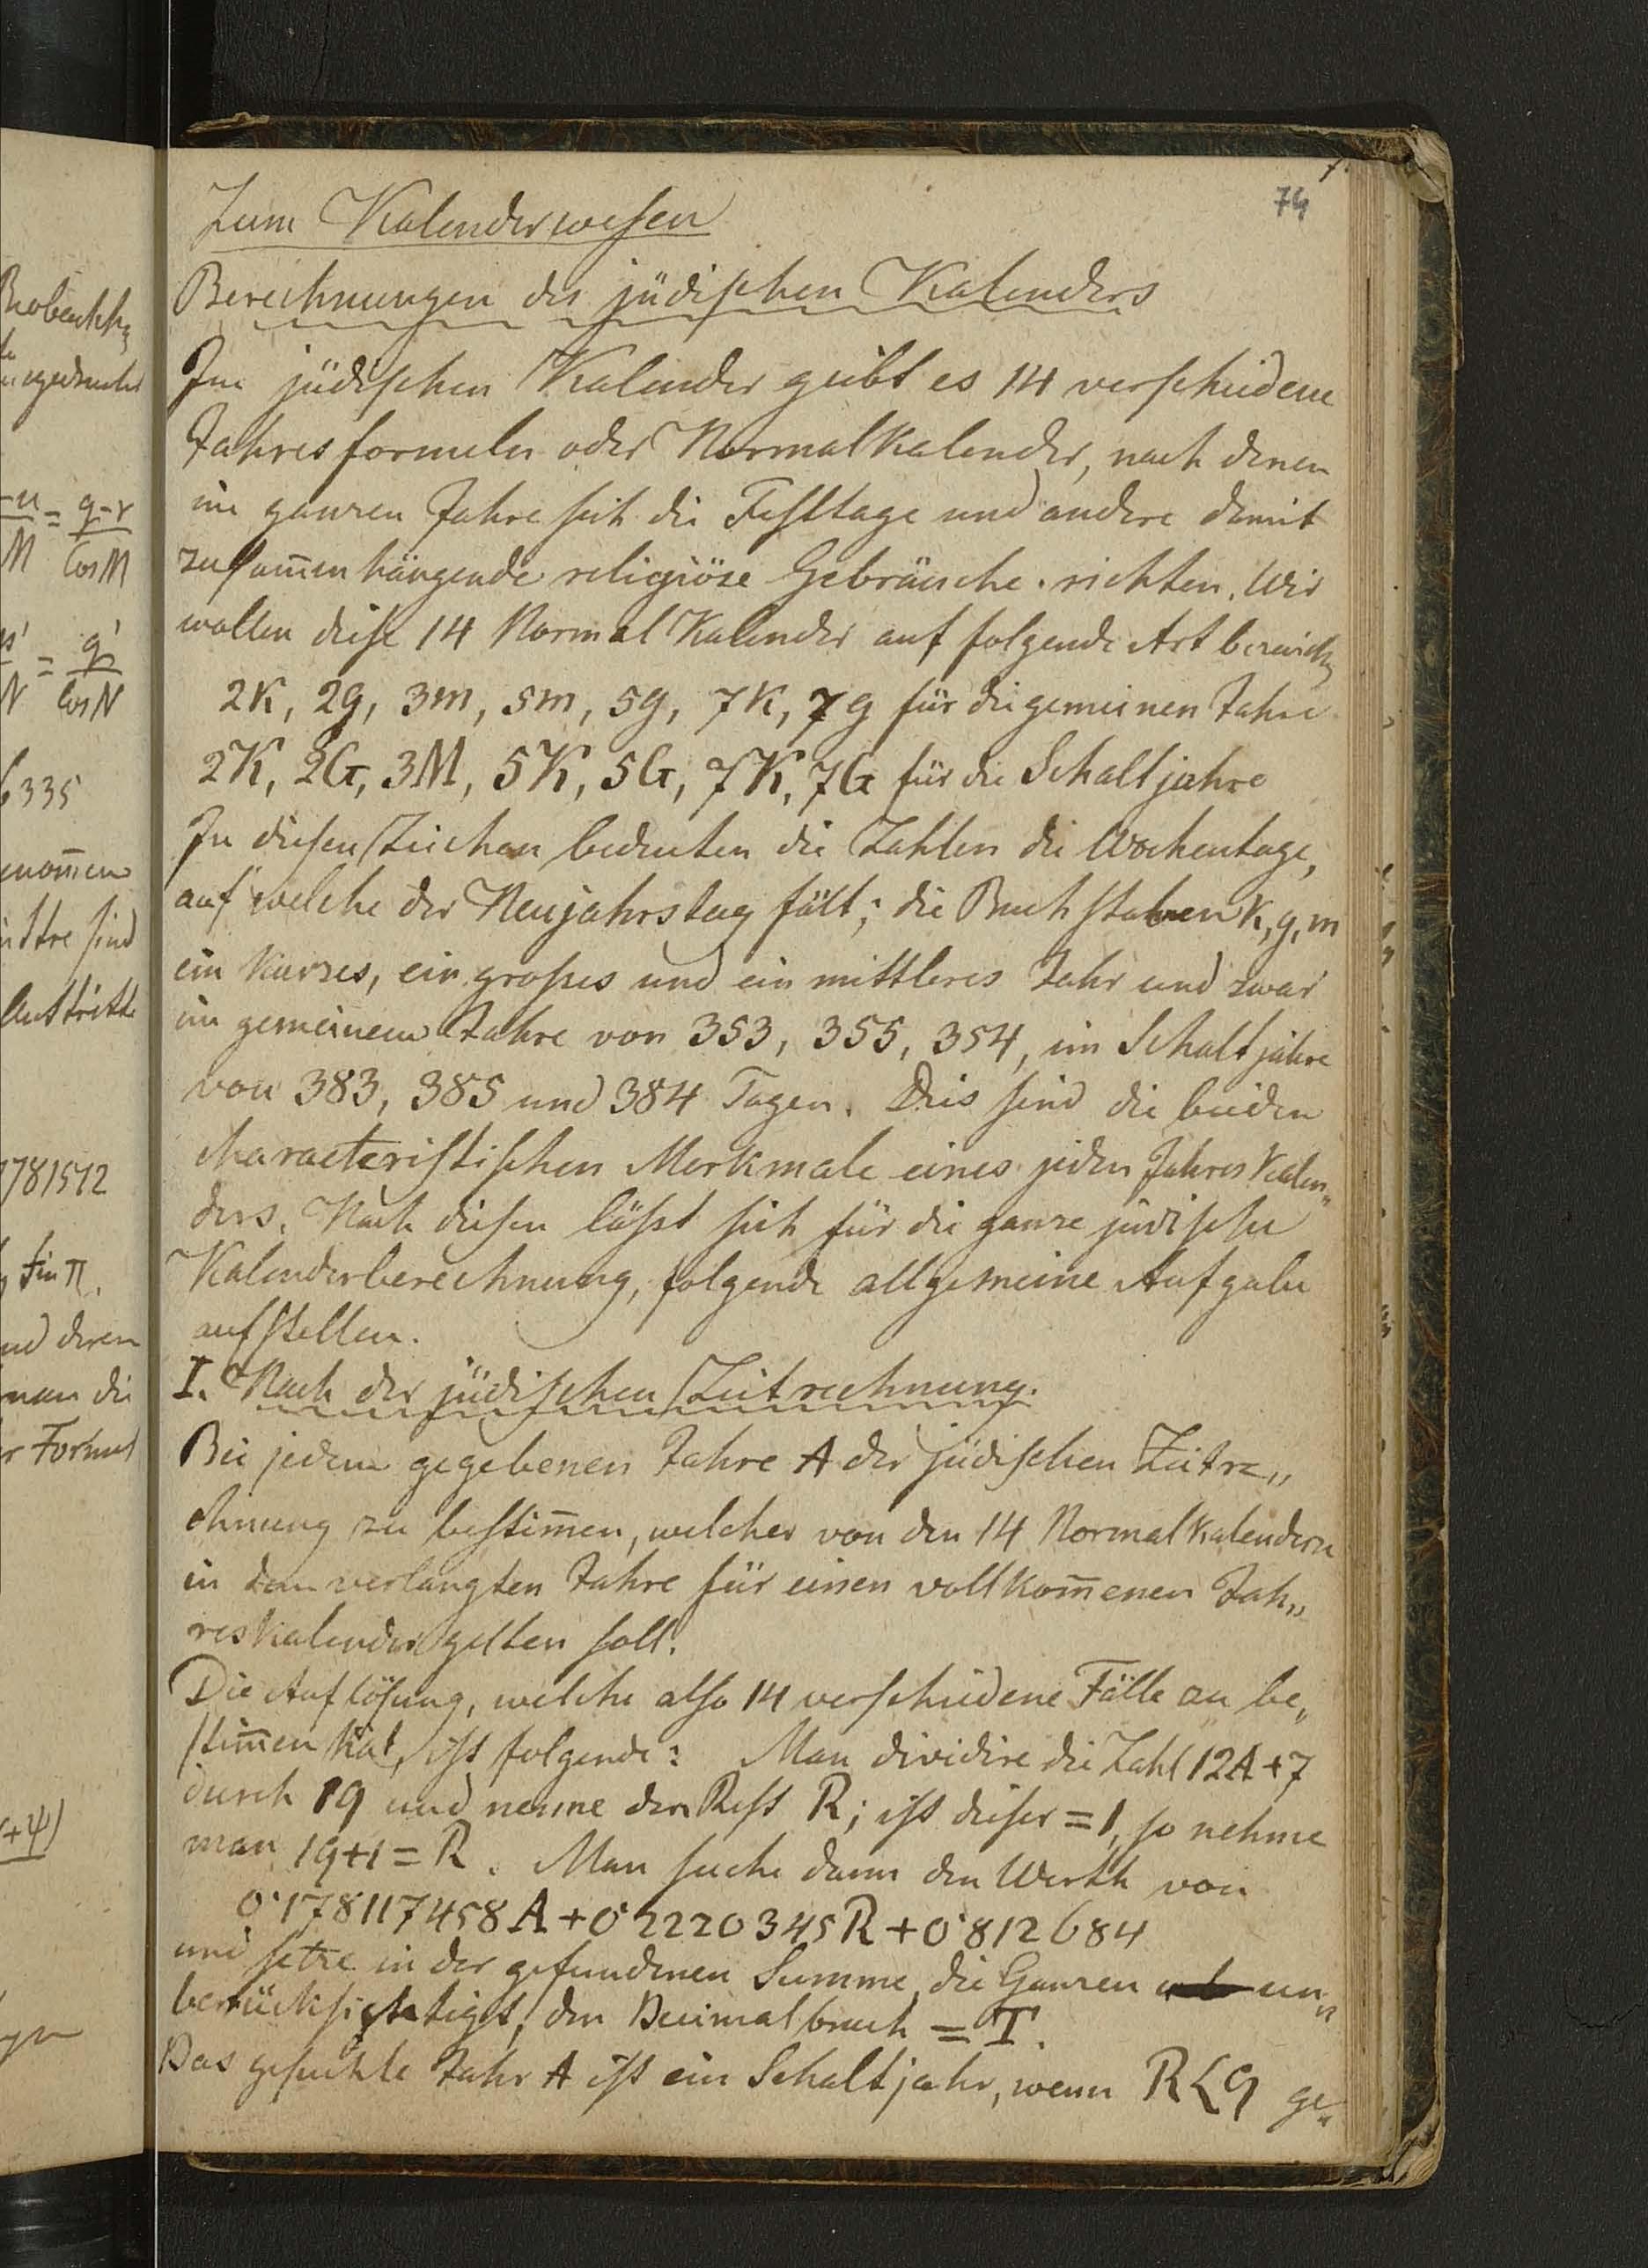 74
Zum Kalenderwesen
Berechnungen des jüdischen Kalenders
Im jüdischen Kalender geibt es 14 verschiedene
Jahresformeln oder Normalkalender, nach denen
im ganzen Jahre sich die Festtage und andere damit
zusam̄enhängende religiöse Gebräuche richten. Wir
wollen diese 14 Normal Kalender auf folgende Art
2K, 2g, 3m, 5m, 5g, 7K, 7g für die gemeinen Jahre
2K, 2G, 3M, 5K, 5G, 7K, 7G für die Schaltjahre
In diesen Zeichen bedeuten die Zahlen die Wochentage,
auf welche der Neujahrstag fält; die Buchstaben K, g, m
ein kurzes, ein großes und ein mittleres Jahr und zwar
im gemeinem Jahre von 353, 355, 354, im Schaltjahre
von 383, 385 und 384 Tagen. Dies sind die beiden
characteristischen Merkmale eines jeden Jahres Kalen„
ders. Nach diesen läßt sich für die ganze jüdische
Kalenderberechnung, folgende allgemeine Aufgabe
aufstellen.
I. Nach der jüdischen Zeitrechnung.
Bei jedem gegebenen Jahre A der jüdischen Zeitre„
chnung zu bestim̄en, welcher von den 14 Normalkalendern
in dem verlangten Jahre für einen vollkom̄enen Jah„
reskalender gelten soll.
Die Auflösung, welche also 14 verschiedene Fälle zu be„
stim̄en hat, ist folgende: Man dividire die Zahl 12A+7
durch 19 und nenne den Rest R; ist dieser = 1, so nehme
man 19+1 = R. Man suche dann den Werth von
0·178117458A + 0·2220345R + 0·812684
und setze in der gefundenen Summe, die Ganzen un„
berücksichtigt, den Decimalbruch = T.
Das gesuchte Jahr A ist ein Schaltjahr, wenn R<9 ge„